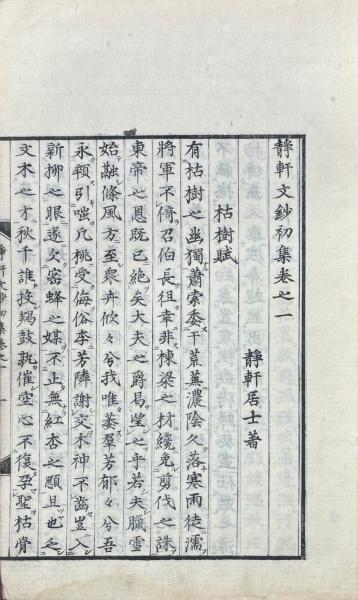 靜軒文鈔初集卷之一
靜軒居士著
枯樹賦
有枯樹之幽獨蕭索委于荒蕪濃陰久落寒雨徒濡
將軍不倚召伯長徂幸非棟梁之材纔免剪伐之誅
東帝之恩既已絶矣大夫之爵焉望之乎若夫臘雪
始融條風方至衆卉欣々兮我唯萎羣芳郁々兮吾
永顇引嗤凡桃受侮俗李芳隣謝交木神不齒豈入
新柳之眼遂欠密蜂之媒不止無紅杏之顋且也乏
文木之才秋千誰投羯鼓孰催空心不復孕聖枯骨
靜軒文鈔初集卷之一 一